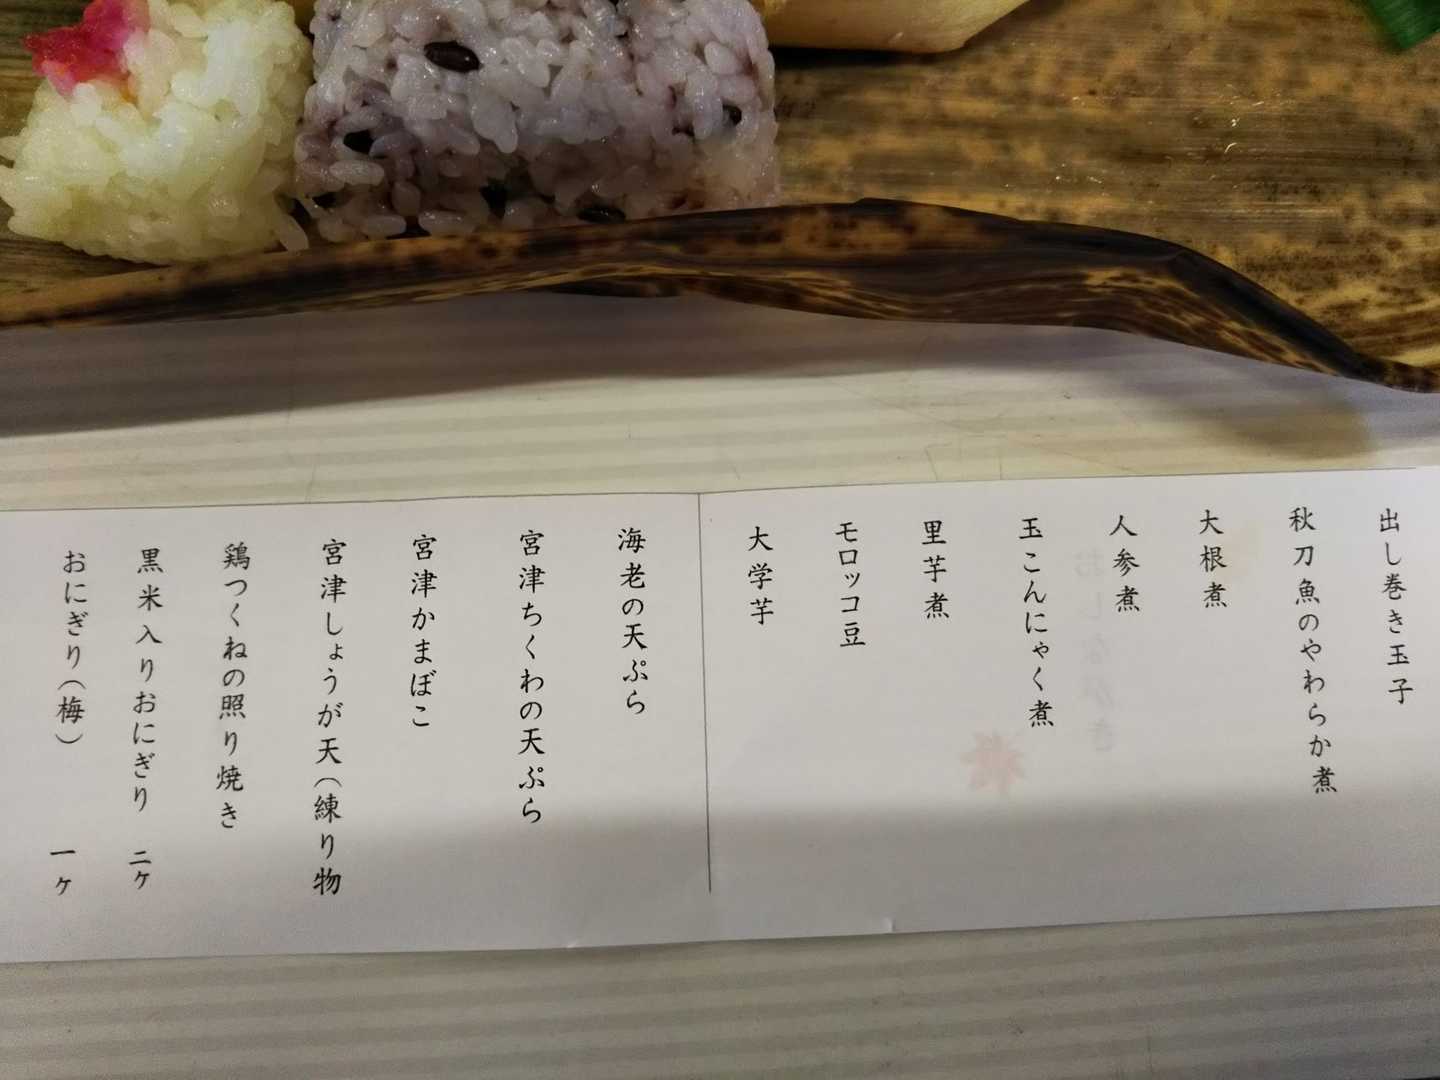 出し巻き玉子
秋刀魚のやわらか煮
大根煮
人参煮
玉こんにゃく煮
里芋煮
モロッコ豆
大学芋
海老の天ぷら
宮津ちくわの天ぷら
宮津かまぼこ
宮津しょうが天（練り物
鶏つくねの照り焼き
黒米入りおにぎり　二ヶ
おにぎり（梅）　一ヶ
おしながき